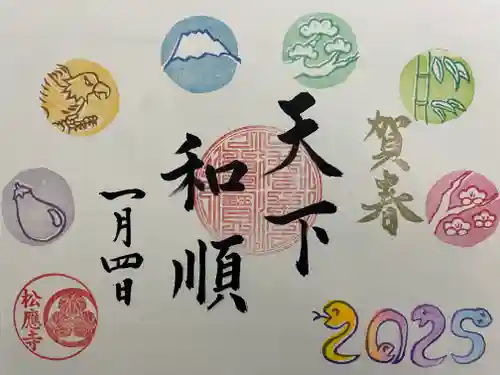 賀春
天下
和順
一月四日
松應寺
2025